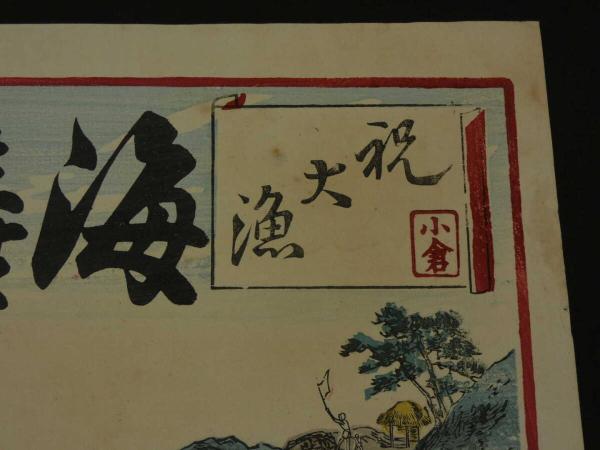 祝大漁
小倉
海